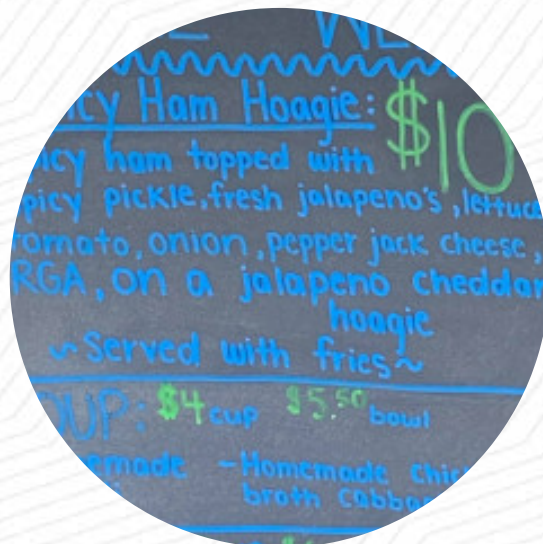 Ham Hoagie: $10
ham topped with
pickle, fresh jalapeno's, lettuce
tomato, onion, pepper jack cheese,
RGA, on a jalapeno cheddar
hoagie
~Served with fries~
$4 cup $5.50 bowl
-Homemade
broth